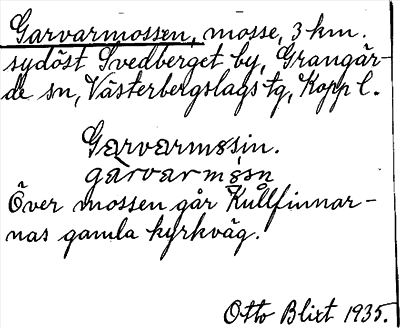 Garvarmossen, mosse, 3 km.
sydöst Svedberget by, Grangär-
de sn, Västerbergslags tg, Kopp l.
Garvarmosin.
garvarmosn
Över mossen går Kullfinnar-
nas gamla kyrkväg.
Otto Blixt 1935.